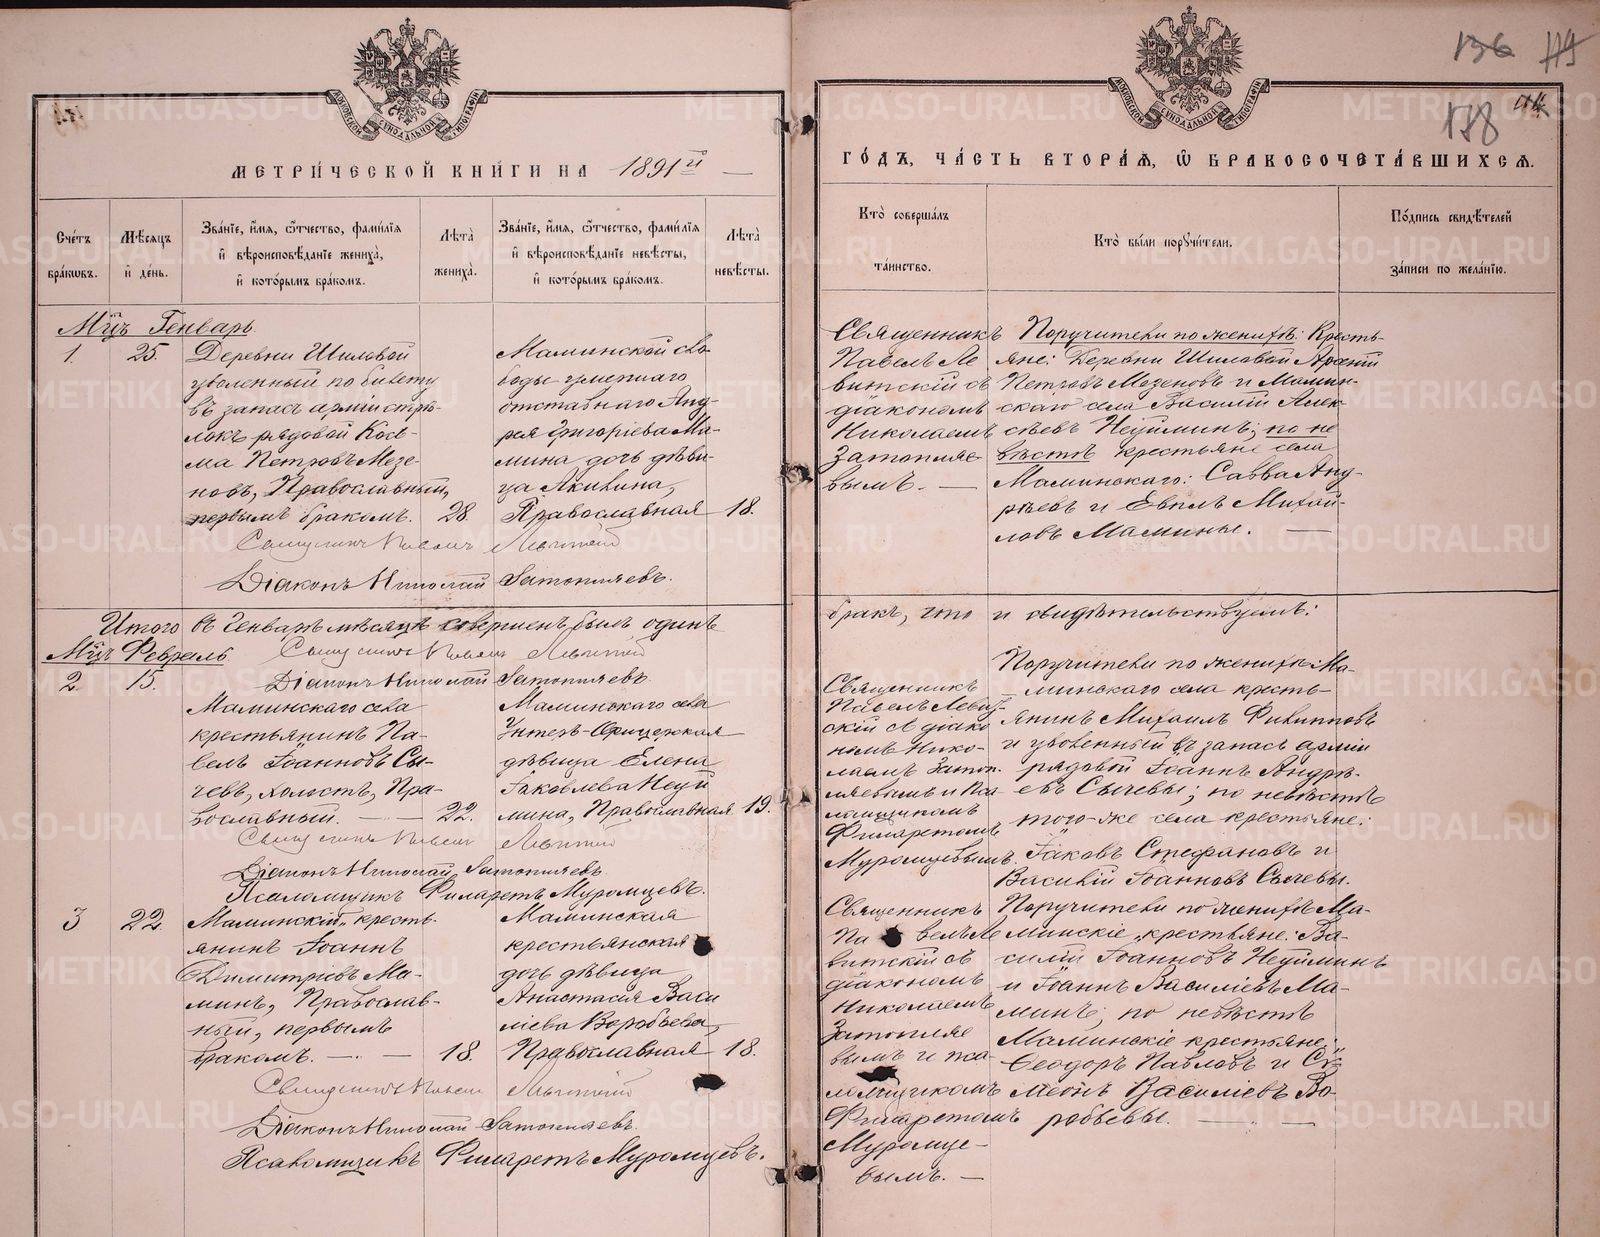 136 119
178
МЕТРИ́ЧЕСКОЙ КНИ́ГИ НА 1891й
ГО́ДЪ, ЧА́СТЬ ВТОРА́Я, Ѡ БРАКОСОЧЕТА́ВШИХСЯ.
Сче́тъ бра́ковъ.
Мѣ́сяцъ и҆ де́нь.
Зва́нїе, и҆́мя, ѻ҆́тчество, фами́лїя
и҆ вѣроисповѣ́данїе жениха̀,
и҆ кото́рымъ бра́комъ.
Лѣта̀ жениха̀.
Зва́нїе, и҆́мя, ѻ҆́тчество, фами́лїя
и҆ вѣроисповѣ́данїе невѣ́сты,
и҆ кото́рымъ бра́комъ.
Лѣта̀ невѣ́сты.
Кто̀ соверша́лъ
та́инство.
Кто̀ бы́ли порꙋчи́тели.
По́дпись свидѣ́телей
за́писи по жела́нїю.
Мцъ Генварь.
1. 25.
Деревни Шиловой
уволенный по билету
въ запасъ арміи стрѣ-
локъ рядовой Кось-
ма Петровъ Мезе-
новъ, Православный,
первымъ бракомъ. 28.
Маминской сло-
боды умершаго
отставнаго Анд-
рея Григоріева Ма-
мина дочь дѣви-
ца Акилина,
Православная 18.
Священникъ
Павелъ Ле
витскій съ
діакономъ
Николаемъ
Затопляе
вымъ. —
Поручители по женихѣ: Кресть-
яне: Деревни Шиловой
Петровъ Мезеновъ и Мамин-
скаго села Василій Алек-
сѣевъ Неуйминъ; по не
вѣстѣ крестьяне села
Маминскаго: Савва Анд-
рѣевъ и Евпл Михай-
ловъ Мамины. —
Священникъ Павелъ Левитскій
Діаконъ Николай Затопляевъ.
Итого въ Генварѣ мѣсяцѣ совершенъ былъ одинъ
бракъ, что и свидѣтельствуемъ:
Священникъ Павелъ Левитскій
Мцъ Февраль.
Діаконъ Николай Затопляевъ
2. 15.
Маминскаго села
крестьянинъ Па-
велъ Іоанновъ Сы-
чевъ, холостъ, Пра-
вославный. — 22.
Маминскаго села
Унтеръ-Офицерская
дѣвица Елена
Іаковлева Неуй
мина, Православная 19.
Священникъ
Павелъ Левит-
скій съ діако
номъ Нико-
лаемъ Затоп-
ляевымъ и Пса
ломщикомъ
Филаретомъ
Муромцевымъ.
Поручители по женихѣ Ма-
минскаго села кресть-
янинъ Михаилъ Филипповъ
и уволенный въ запасъ арміи
рядовой Іоаннъ Андрѣ-
евъ Сычевы; по невѣстѣ
того-же села крестьяне:
Іаковъ Стефановъ и
Василій Іоанновъ Сычевы.
Священникъ Павелъ Левитскій
Діаконъ Николай Затопляевъ.
Псаломщикъ Филаретъ Муромцевъ.
3 22
Маминскій кресть-
янинъ Іоаннъ
Димитріевъ Ма-
минъ, Православ-
ный, первымъ
бракомъ. — 18.
Маминская
крестьянская
дочь дѣвица
Анастасія Васи
ліева Воробьева,
Православная 18.
Священникъ
Павелъ Ле
витскій съ
діакономъ
Николаемъ
Затопляе
вымъ и пса-
ломщикомъ
Филаретомъ
Муромце-
вымъ. —
Поручители по женихѣ Ма-
минскіе крестьяне: Ва-
силій Іоанновъ Неуйминъ
и Іоаннъ Василіевъ Ма-
минъ; по невѣстѣ
Маминскіе крестьяне:
Ѳеодоръ Павловъ и Си-
меонъ Василіевъ Во-
робьевы. —
Священникъ Павелъ Левитскій
Діаконъ Николай Затопляевъ.
Псаломщикъ Филаретъ Муромцевъ.
METRIKI.GASO-URAL.RU